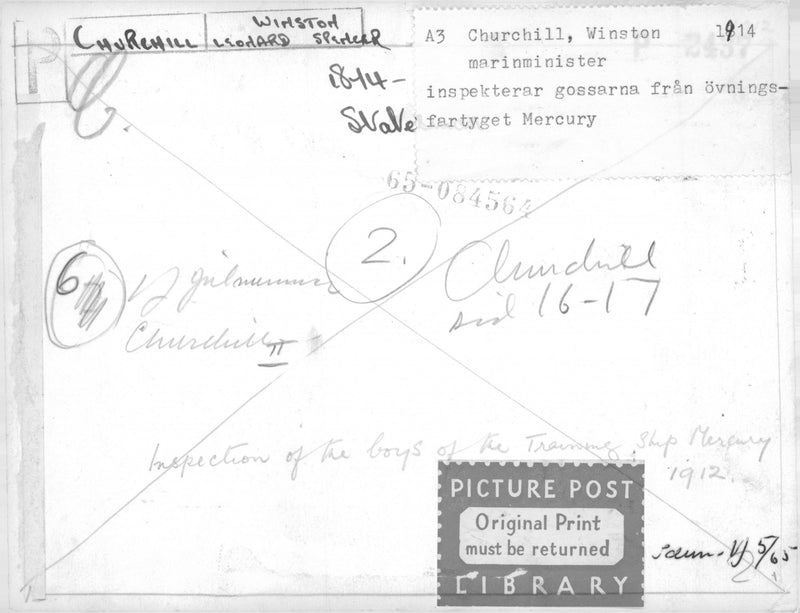 CHURCHILL
WINSTON
LEONARD SPENCER
A3 Churchill, Winston 1914
marinminister
inspekterar gossarna från övnings-
fartyget Mercury
P
1874-
65-084564
6
2.
Churchill
sid 16-17
Churchill II
Inspection of the boys of the Training Ship Mercury
1912.
PICTURE POST
Original Print
must be returned
LIBRARY
5/65